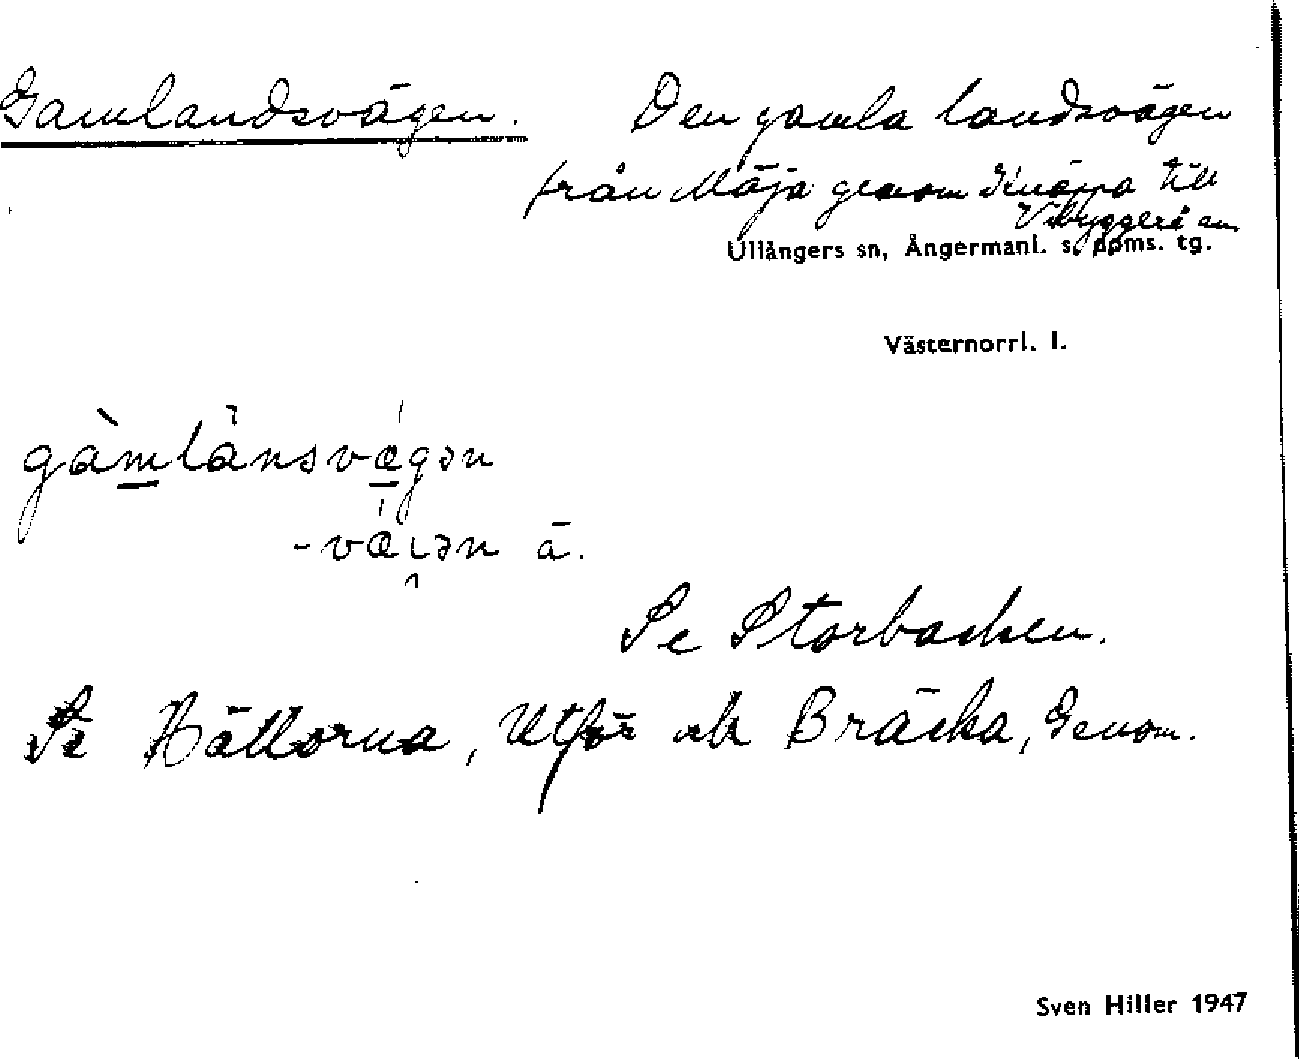 Gamlandsvägen. Den gamla landsvägen
från Mäja genom Knäppa till
Vibyggerå sn
Ullångers sn, Ångermanl. s. doms. tg.
Västernorrl. l.
gàmlànsvǽgən
-vǽɩ̯ən ä.
Se Storbacken.
Se Hällorna, Utför och Bräcka, Genom.
Sven Hiller 1947